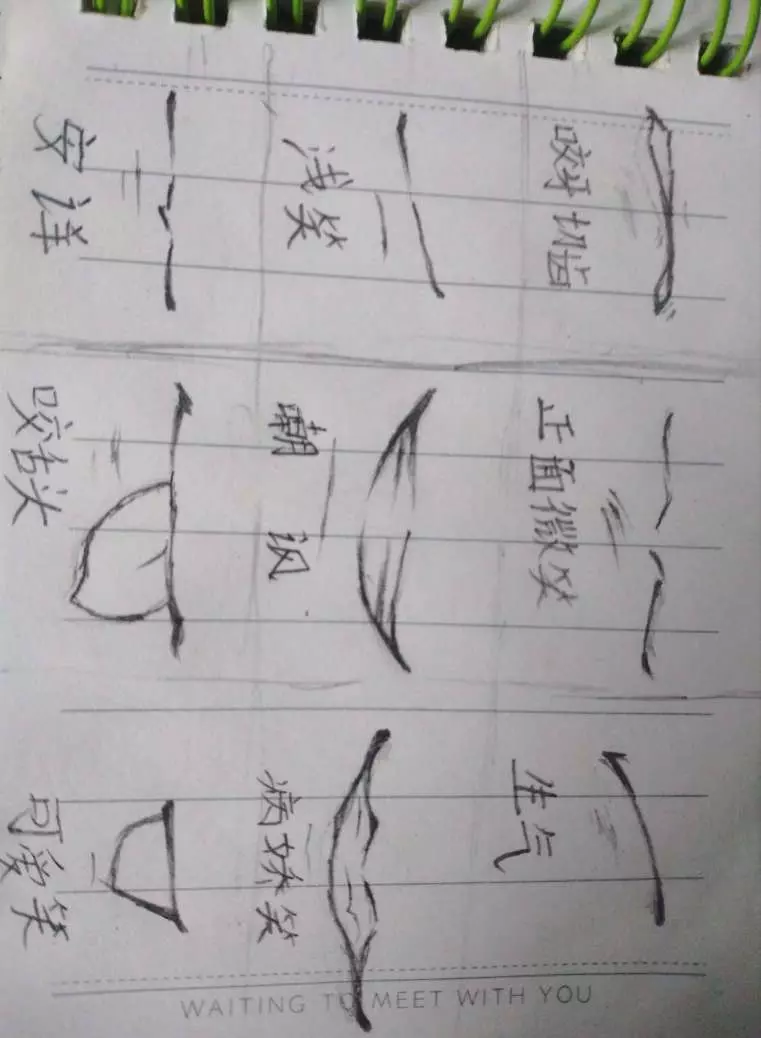 安详
浅笑
咬牙切齿
咬舌头
嘲讽
正面微笑
可爱笑
病娇笑
生气
WAITING TO MEET WITH YOU